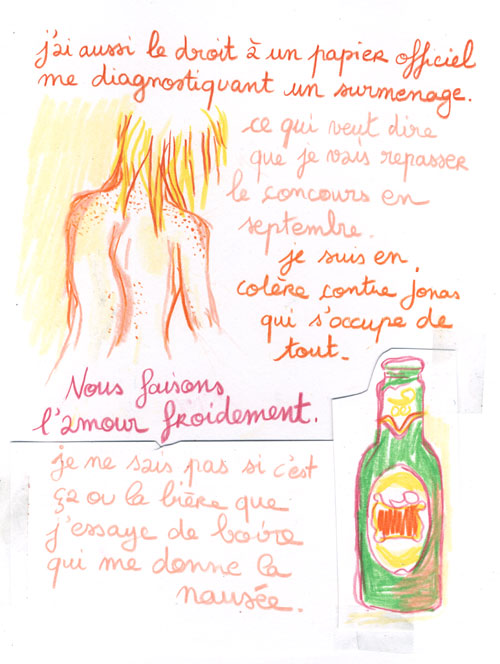 j'ai aussi le droit à un papier officiel
me diagnostiquant un surmenage.
ce qui veut dire
que je vais repasser
le concours en
septembre.
je suis en
colère contre jonas
qui s'occupe de
tout.
Nous faisons
l'amour froidement.
je ne sais pas si c'est
ça ou la bière que
j'essaye de boire
qui me donne la
nausée.